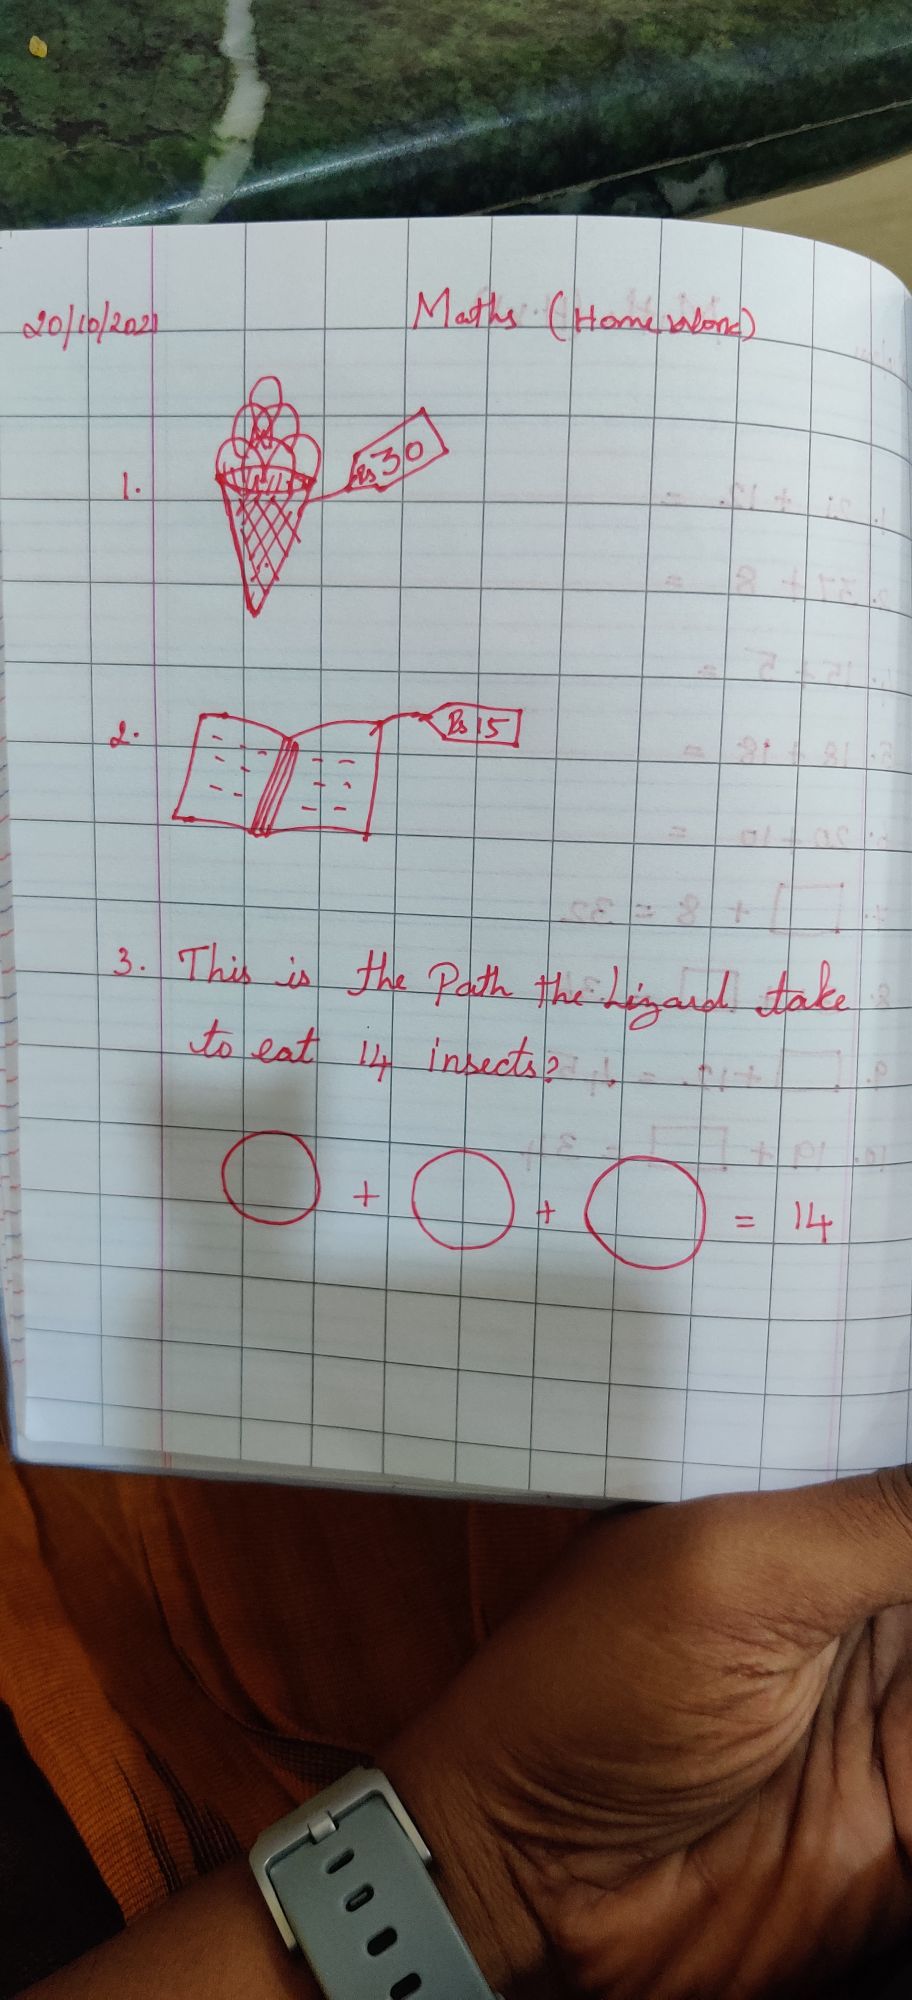 20/10/2021
Maths (Home Work)
1.
Rs 30
2.
Rs 15
3. This is the Path the Lizard take
to eat 14 insects?
+ + = 14